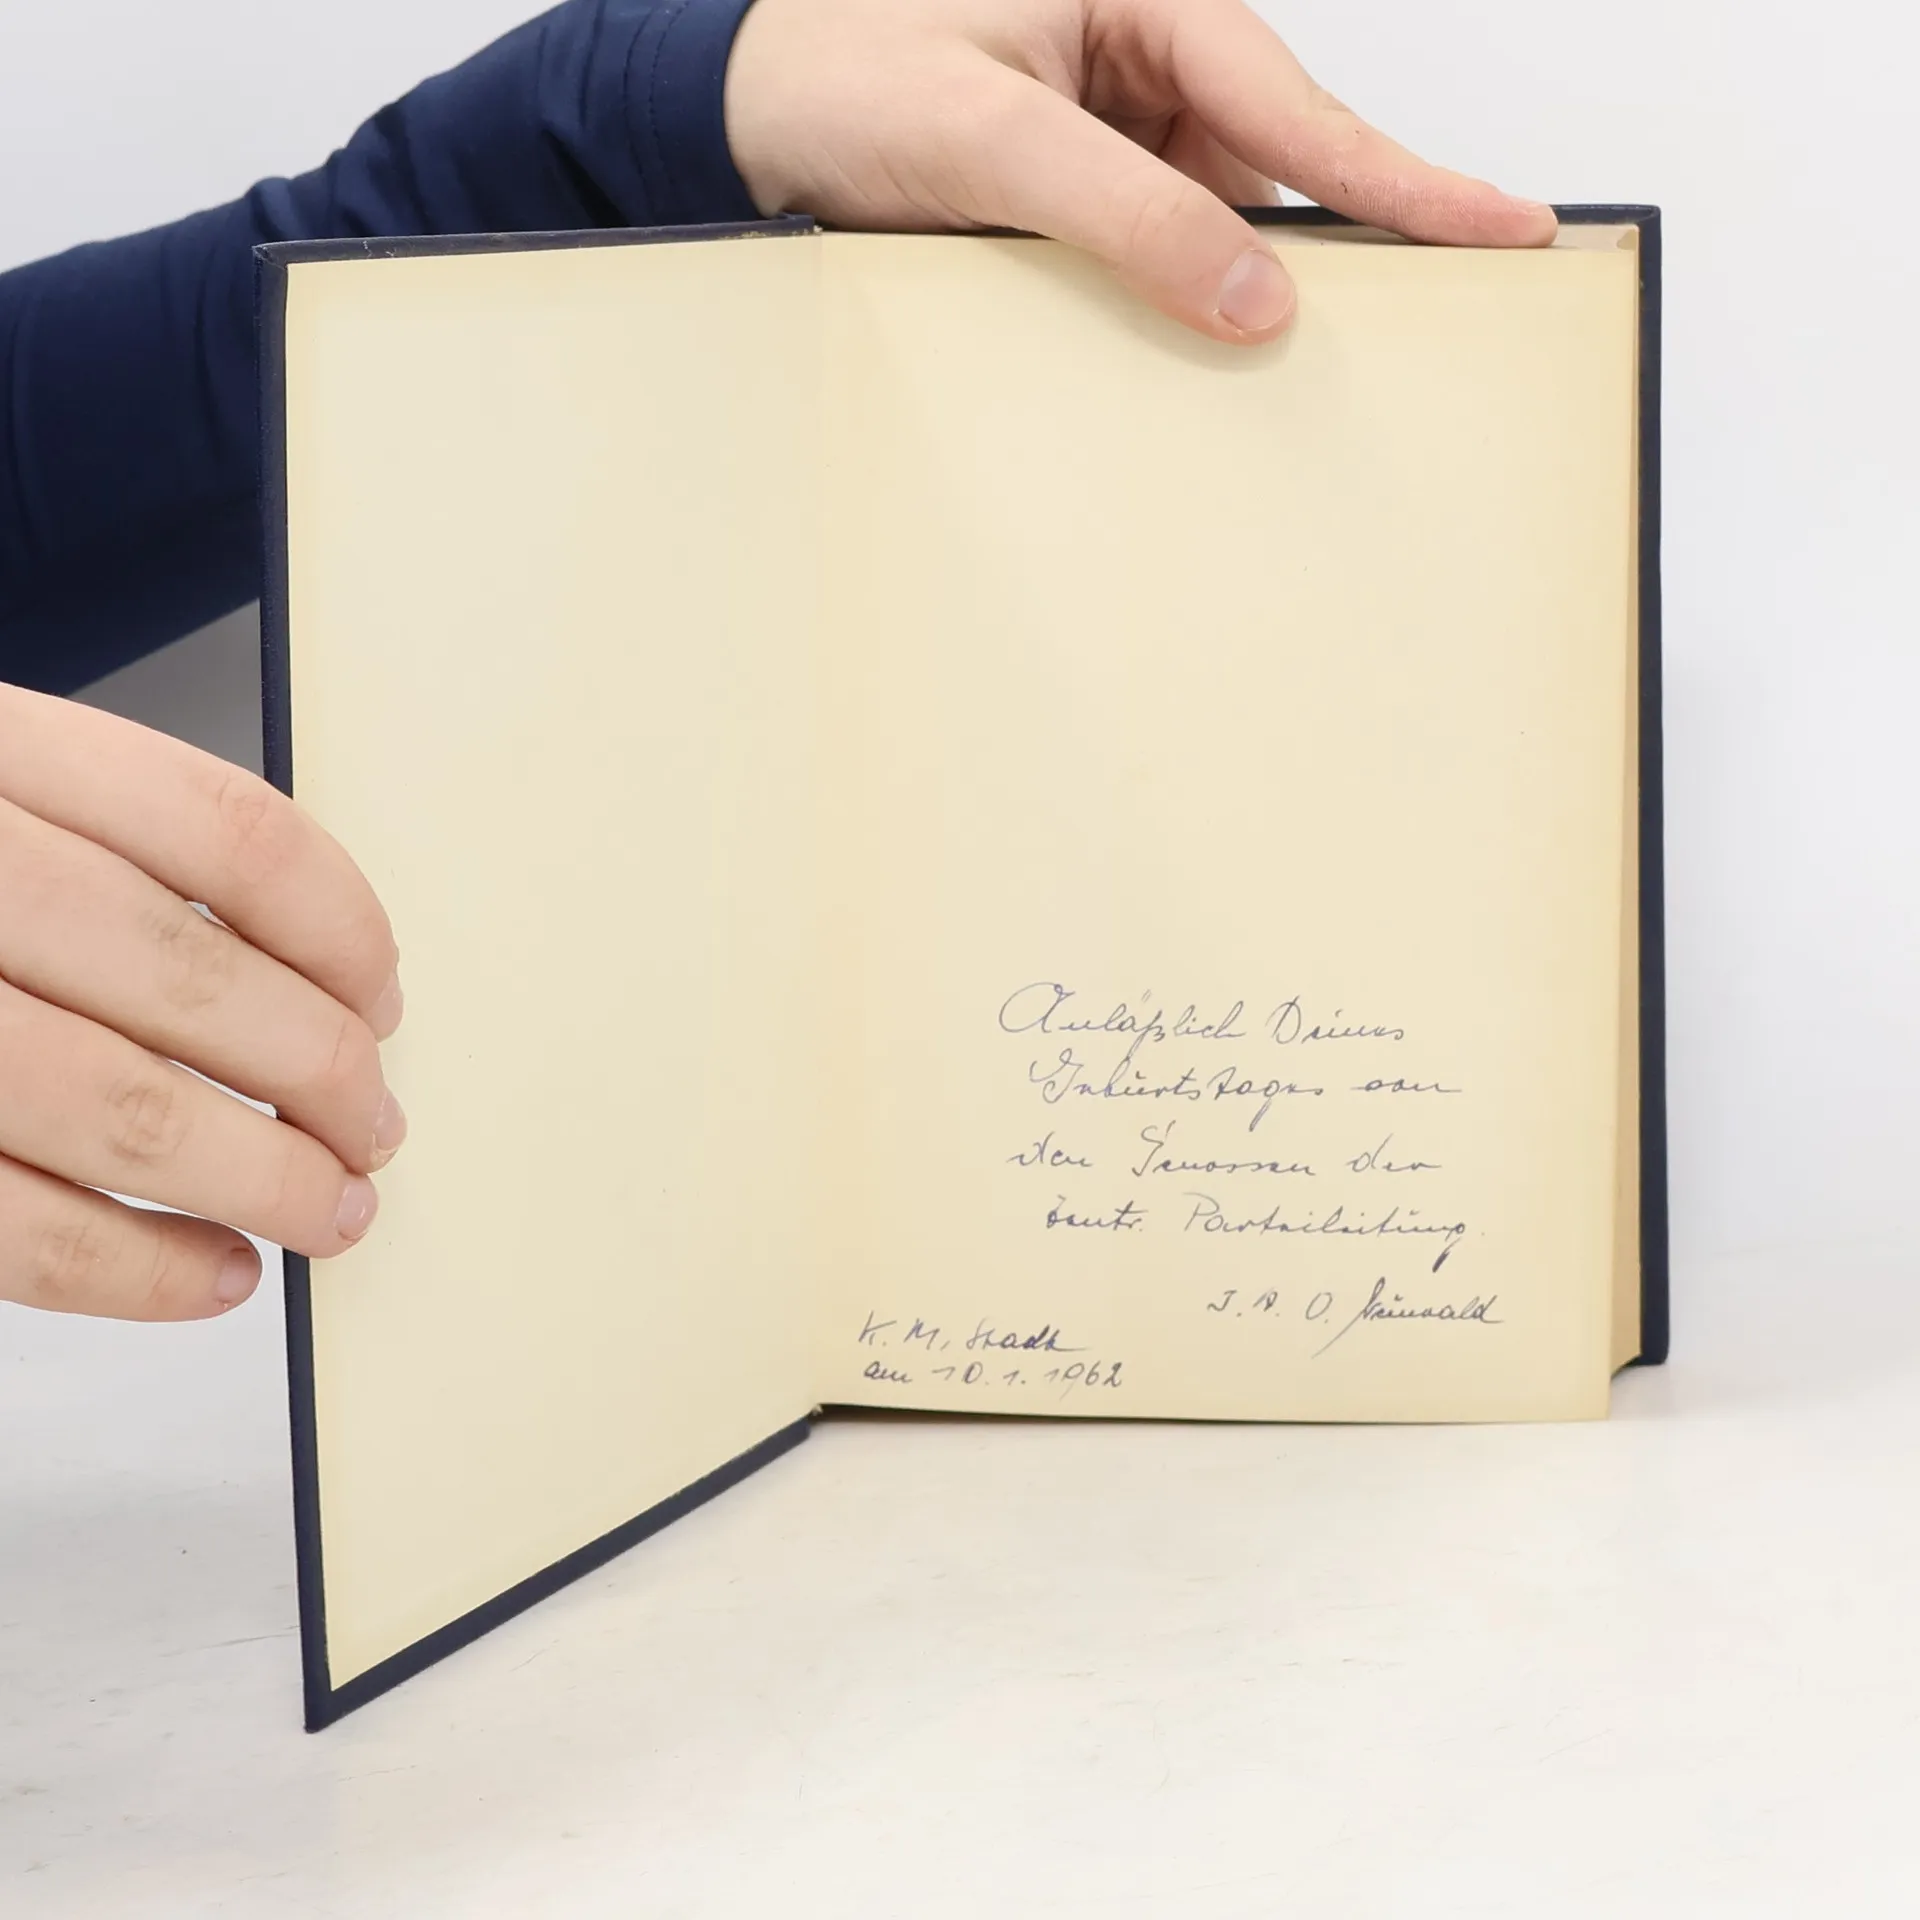 Anläßlich Deines
Geburtstages von
den Genossen der
Zentr. Parteileitung.
I. A. O. Grünwald
K. M. Stadt
am 10. 1. 1962